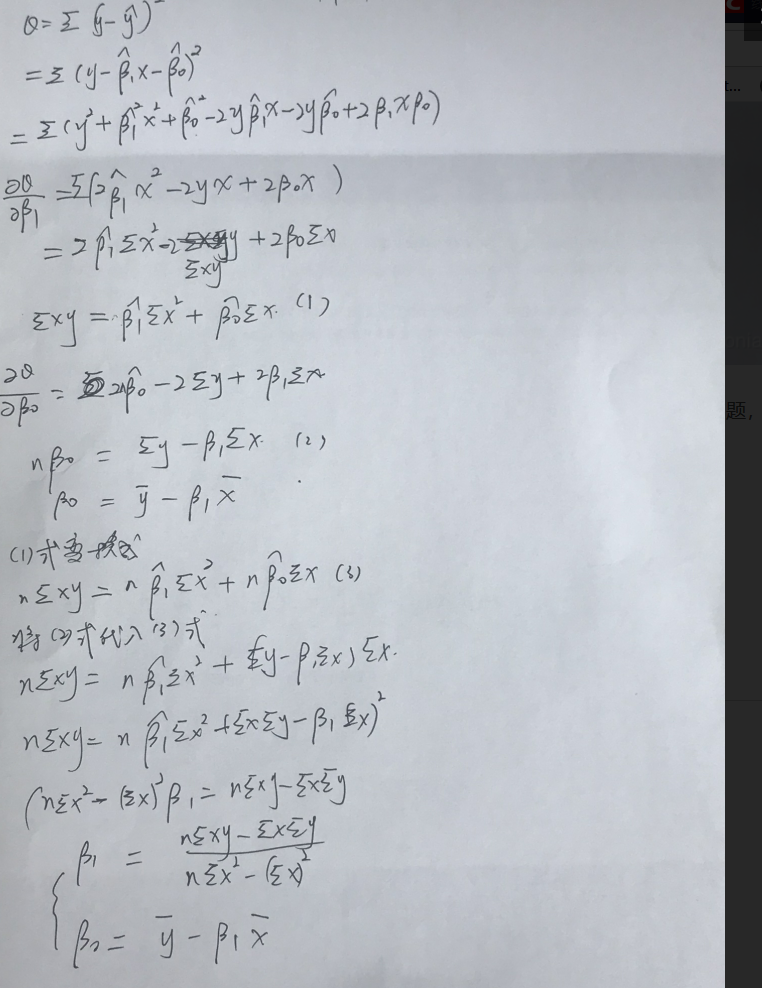 Q = Σ (y - ŷ)²
= Σ (y - β̂₁x - β̂₀)²
= Σ (y² + β̂₁²x² + β̂₀² - 2yβ̂₁x - 2yβ̂₀ + 2β₁xβ₀)
∂Q/∂β₁ = Σ(2β̂₁x² - 2yx + 2β₀x)
= 2β̂₁Σx² - 2Σxy + 2β₀Σx
Σxy = β̂₁Σx² + β̂₀Σx. (1)
∂Q/∂β₀ = 2nβ̂₀ - 2Σy + 2β₁Σx
nβ₀ = Σy - β₁Σx. (2)
β₀ = ȳ - β₁x̄
(1)式变换
nΣxy = nβ̂₁Σx² + nβ̂₀Σx (3)
将(2)式代入(3)式
nΣxy = nβ̂₁Σx² + (Σy - β₁Σx)Σx.
nΣxy = nβ̂₁Σx² + (ΣxΣy - β₁Σx)²
(nΣx² - (Σx)²β₁ = nΣxy - ΣxΣy
β₁ = (nΣxy - ΣxΣy)/(nΣx² - (Σx)²)
β₀ = ȳ - β₁x̄
题,